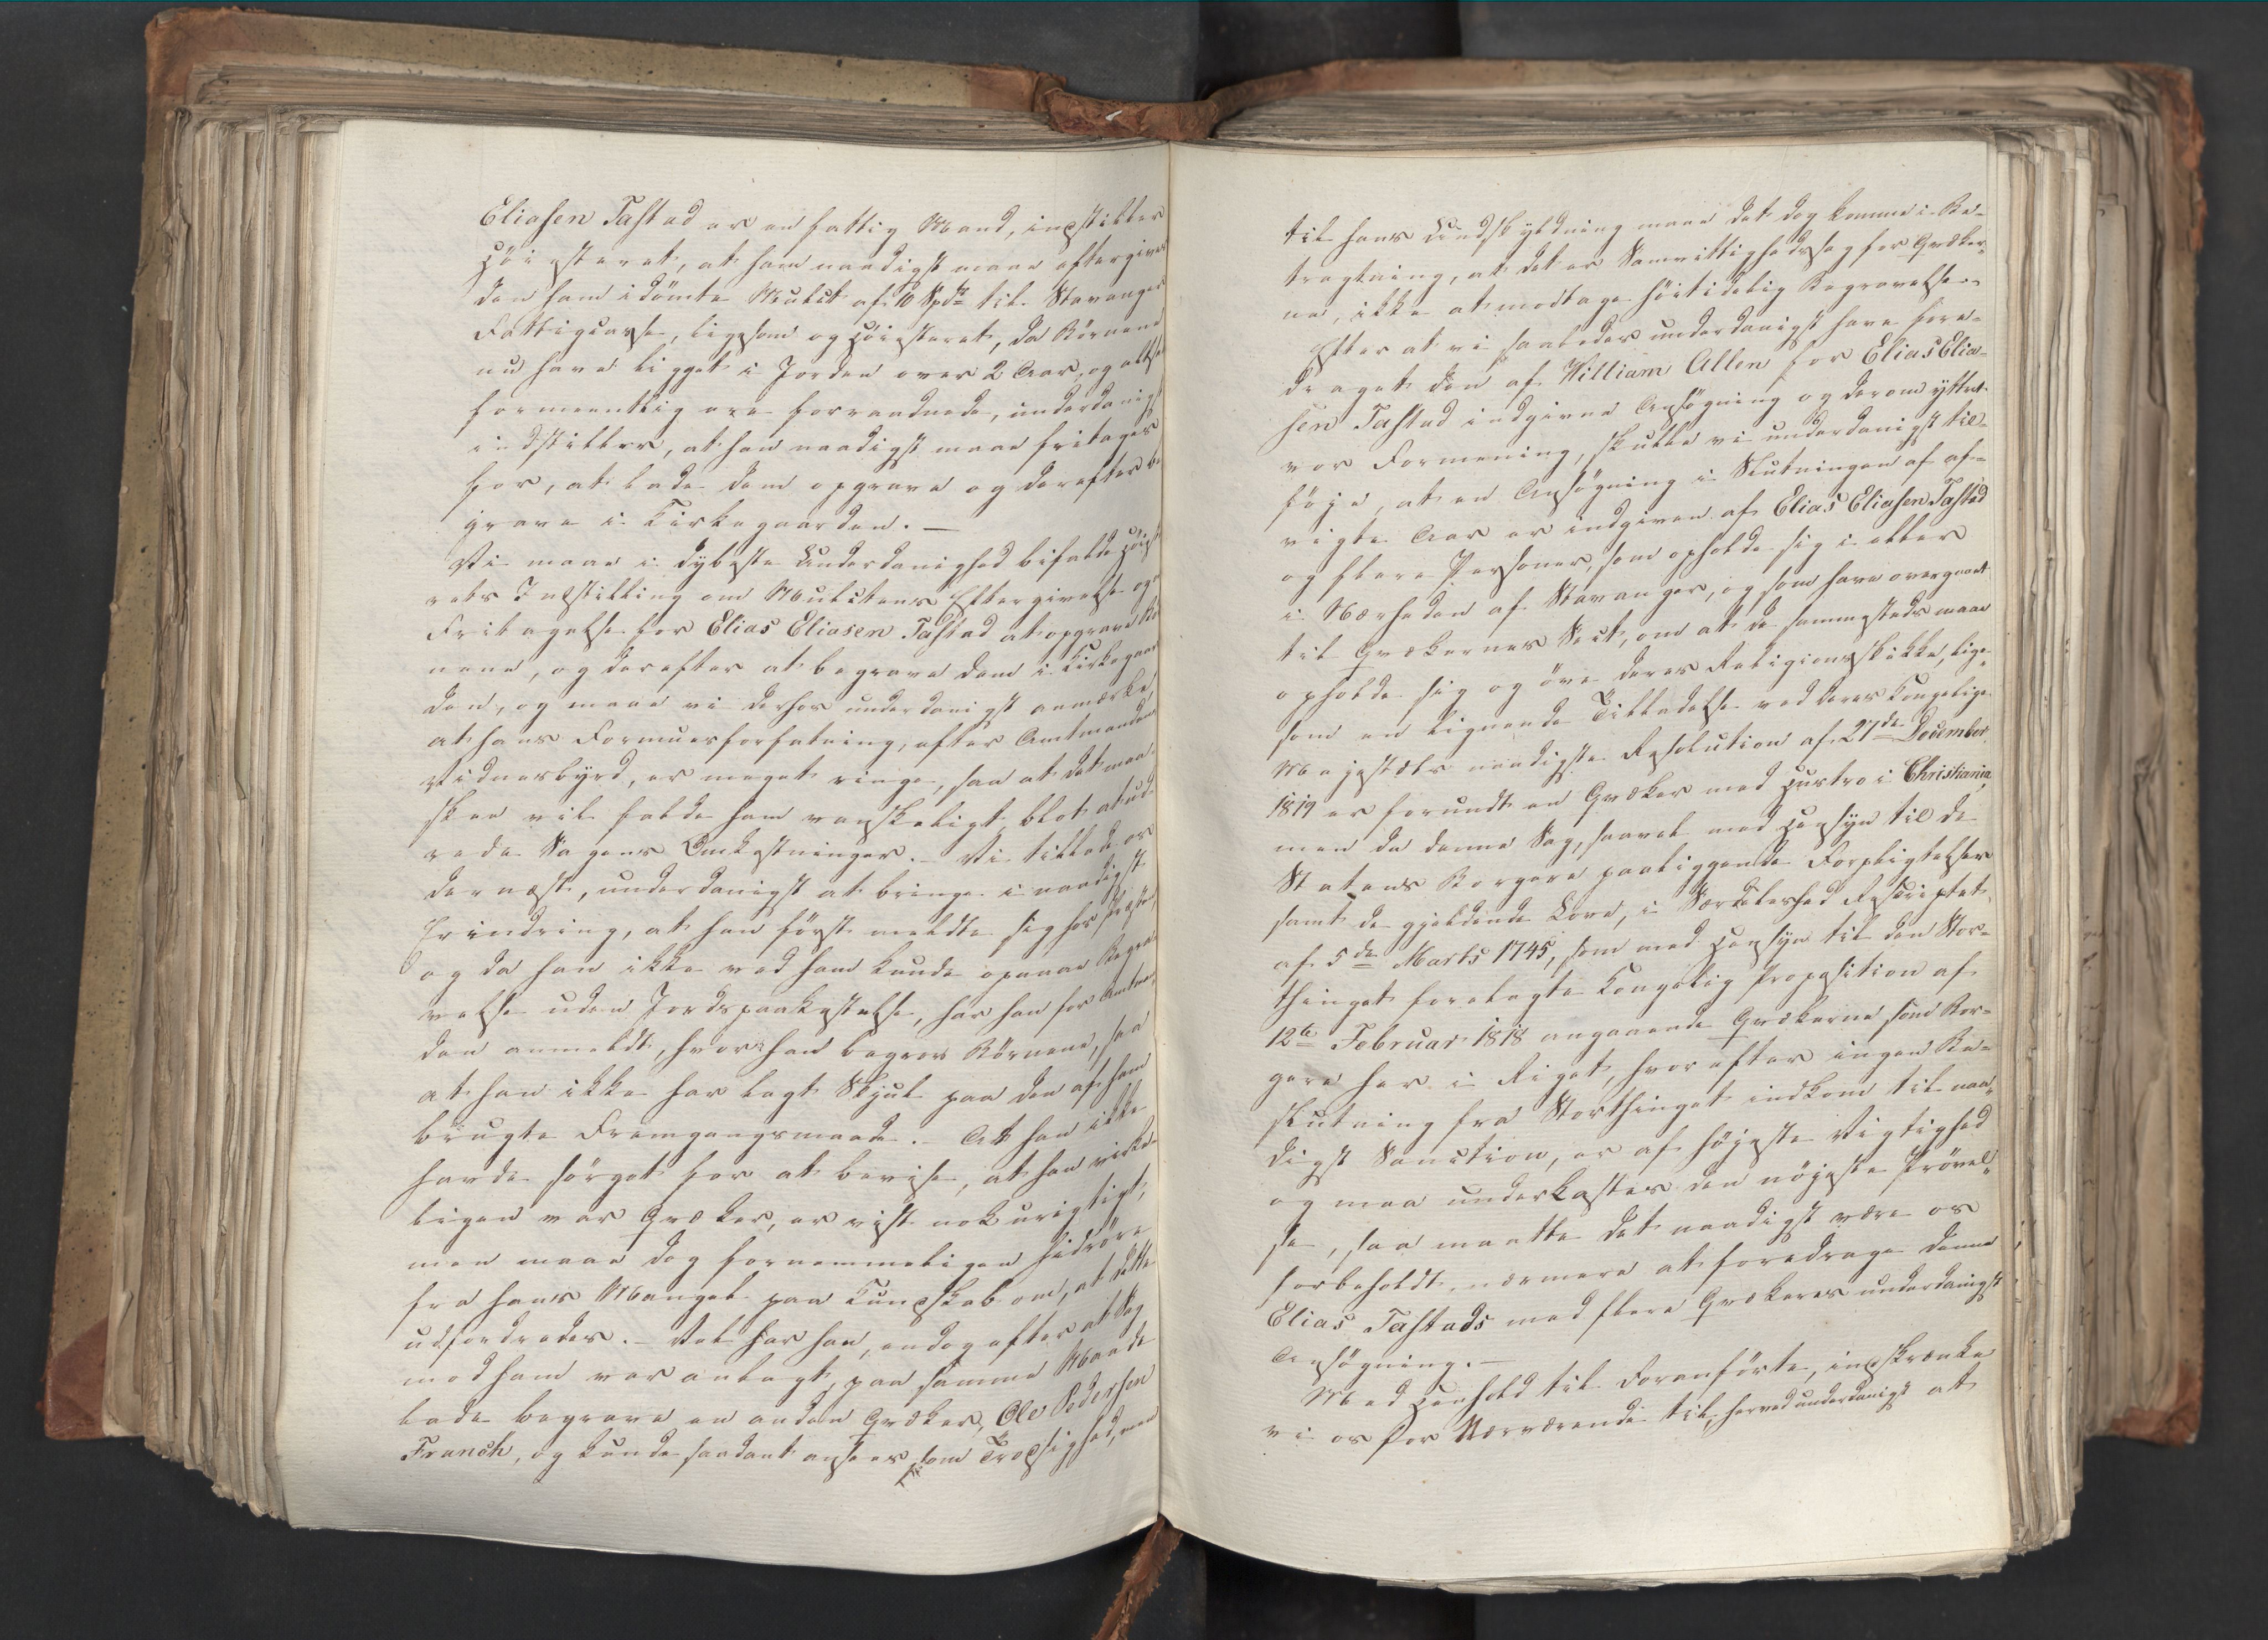 Eliasen Tastad er en fattig Mand, indstiller
Höiesteret, at ham naadigst maae eftergives
den ham idömte Mulct af 10 Spdr til Stavanger
Fattigcasse, ligesom og Höiesteret, da Börnene
nu have ligget i Jorden over 2 Aar, og altsaa
formeentlig ere forraadnede, underdanigst
indstiller, at han naadigst maae fritages
for, at lade dem opgrave og derefter be
grave i Kirkegaarden. —
Vi maae i dybeste Underdanighed bifalde Höieste
rets Indstilling om Mulctens Eftergivelse og
Fritagelse for Elias Eliasen Tastad at opgrave Bör
nene, og derefter at begrave dem i Kirkegaar
den, og maae vi derhos underdanigst anmærke,
at hans Formuesforfatning, efter Amtmandens
Vidnesbyrd, er meget ringe, saa at det maa
skee vil falde ham vanskeligt blot at ud
rede Sagens Omkostninger. – Vi tillade os
dernæst, underdanigst at bringe i naadigst
Erindring, at han först meldte sig hos Præsten,
og da han ikke ved ham kunde opnaae Begra
velse uden Jordspaakastelse, har han for Amtman
den anmeldt, hvor han begrov Börnene, saa
at han ikke har lagt Skjul paa den af ham
brugte Fremgangsmaade. – At han ikke
havde sörget for at bevise, at han virke
ligen var Qvæker, er vist nok urigtigt,
men maae dog fornemmeligen hidröre
fra hans Mangel paa Kundskab om, at dette
udfordredes. – Vel har han, endog efter at Sag
mod ham var anlagt, paa samme Maade
lade begrave en anden Qvæker, Ole Pedersen
Franck, og kunde saadant ansees som Trodsighed, men
til hans Undskyldning maae det dog komme i Be-
tragtning, at det er Samvittighedssag for Qvæker-
ne, ikke at modtage höitidelig Begravelse. –
Efter at vi saaledes underdanigst have fore-
draget den af William Allen for Elias Elia-
sen Tastad indgivne Ansögning og derom yttret
vor Formening, skulle vi underdanigst til-
föje, at en Ansögning i Slutningen af af-
vigte Aar er indgiven af Elias Eliasen Tastad
og flere Personer, som opholde sig i eller
i Nærheden af Stavanger, og som have overgaaet
til Qvækernes Sect, om at de sammesteds maae
opholde sig og öve deres Religionsskikke, lige-
som en lignende Tilladelse ved Deres Kongelige
Majestæts naadigste Resolution af 27de December
1819 er forundt en Qvæker med Hustru i Christiania,
men da denne Sag, saavel med Hensyn til de
Statens Borgere paaliggende Forpligtelser
samt de gjeldende Love, i Særdeleshed Rescriptet
af 5de Marts 1745, som med Hensyn til den Stor-
thinget forelagte Kongelig Proposition af
12te Februar 1818 angaaende Qvækerne som Bor-
gere her i Riget, hvorefter ingen Be-
slutning fra Storthinget indkom til naa-
digst Sanction, er af höjeste Vigtighed
og maa underkastes den nöjeste Prövel-
se, saa maatte det naadigst være os
forbeholdt nærmere at foredrage denne
Elias Tastads med flere Qvækeres underdanigst
Ansögning. —
Med Henhold til Foranförte, indskrænke
vi os for Nærværende til, herved underdanigst at